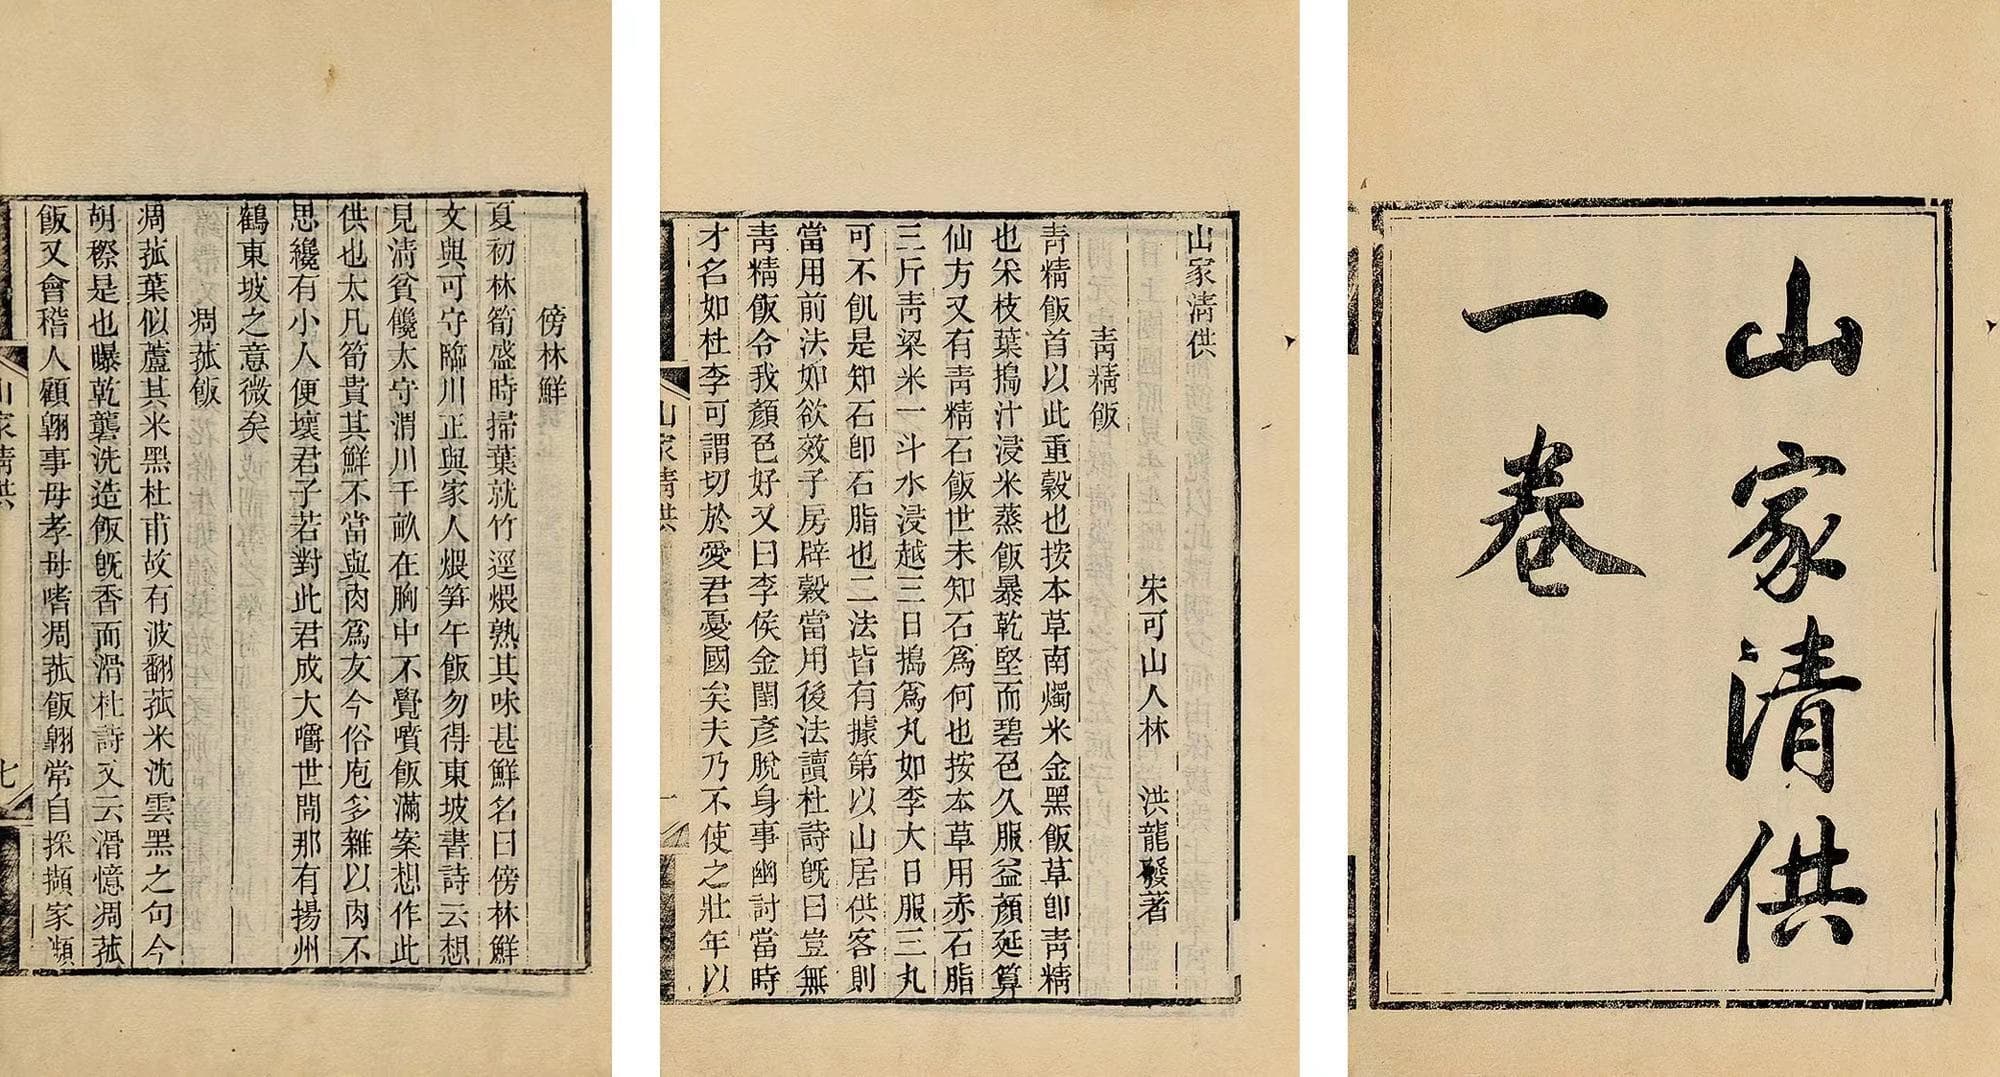 山家清供
一卷
山家清供
宋可山人林 洪龍發著
靑精飯
靑精飯首以此重穀也按本草南燭米金黑飯草卽靑精
也采枝葉搗汁浸米蒸飯暴乾堅而碧色久服益顏延算
仙方又有靑精石飯世未知石爲何也按本草用赤石脂
三斤靑粱米一斗水浸越三日搗爲丸如李大日服三丸
可不飢是知石卽石脂也二法皆有據第以山居供客則
當用前法如欲效子房辟穀當用後法讀杜詩旣曰豈無
靑精飯令我顏色好又曰李侯金閨彥脫身事幽討當時
才名如杜李可謂切於愛君憂國矣夫乃不使之壯年以
山家清供
一
傍林鮮
夏初林筍盛時掃葉就竹邊煨熟其味甚鮮名曰傍林鮮
文與可守臨川正與家人煨筍午飯勿得東坡書詩云想
見淸貧饞太守渭川千畝在胸中不覺噴飯滿案想作此
供也大凡筍貴其鮮不當與肉爲友今俗庖多雜以肉不
思纔有小人便壞君子若對此君成大嚼世間那有揚州
鶴東坡之意微矣
凋菰飯
凋菰葉似蘆其米黑杜甫故有波翻菰米沈雲黑之句今
胡穄是也曝乾礱洗造飯旣香而滑杜詩又云滑憶凋菰
飯又會稽人顧翺事母孝母嗜凋菰飯翺常自採擷家瀕
山家清供
七